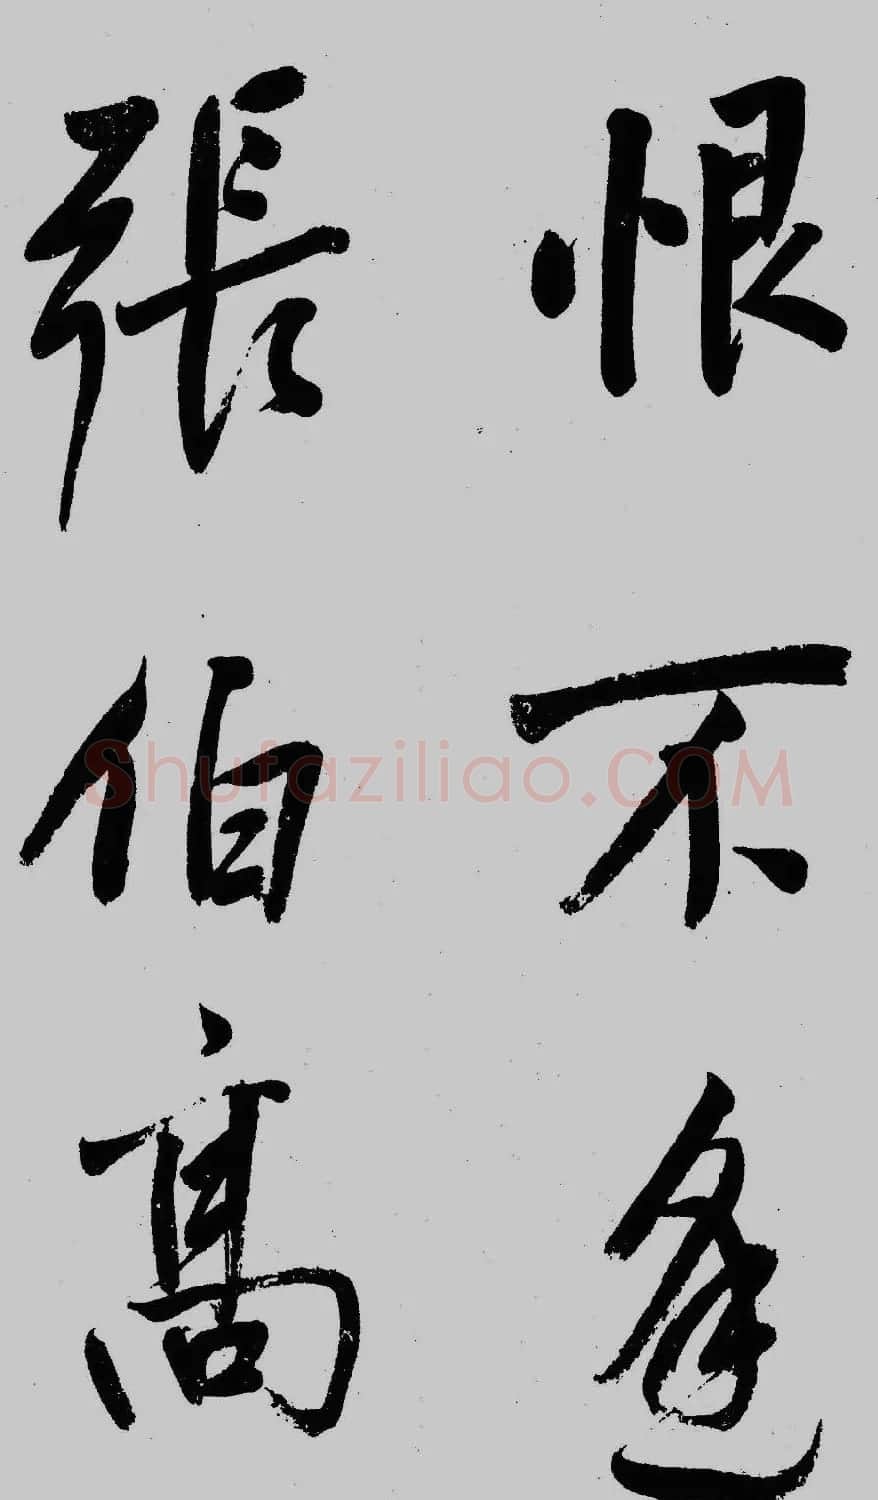 恨不逢
張伯高
Shufaziliao.COM